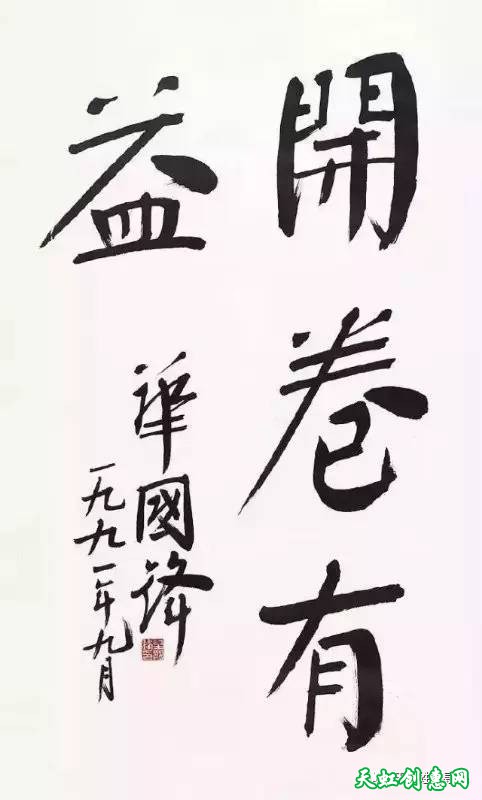 開卷有
益
華國鋒
一九九一年九月
天虹创意网